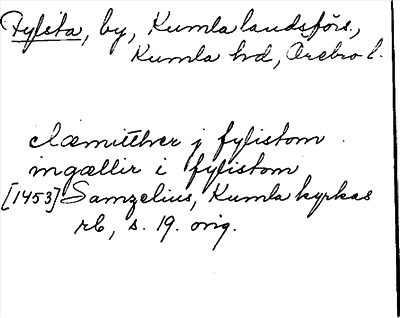 Fylsta, by, Kumla landsförs.,
Kumla hd, Örebro l.
clæmitther j fylistom
ingællir i fylistom
[1453] Samzelius, Kumla kyrkas
rb, s. 19. orig.